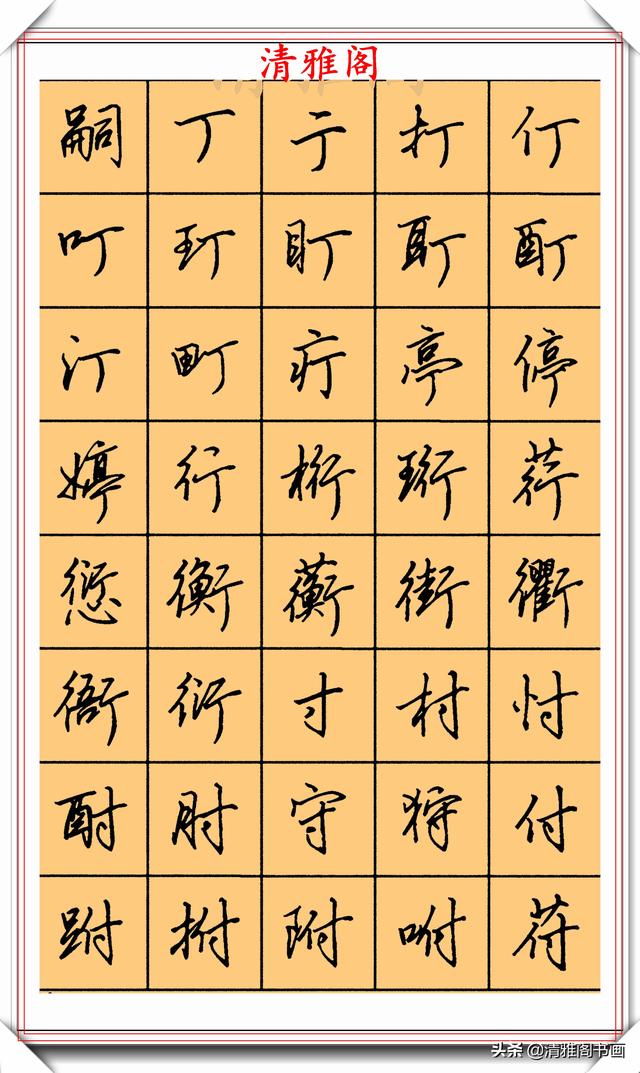 清雅阁
嗣丁亍打仃
叮玎盯耵酊
汀町疔亭停
婷行桁珩荇
愆衡蘅街衢
衙衍寸村忖
酎肘守狩付
跗拊咐苻
头条@清雅阁书画